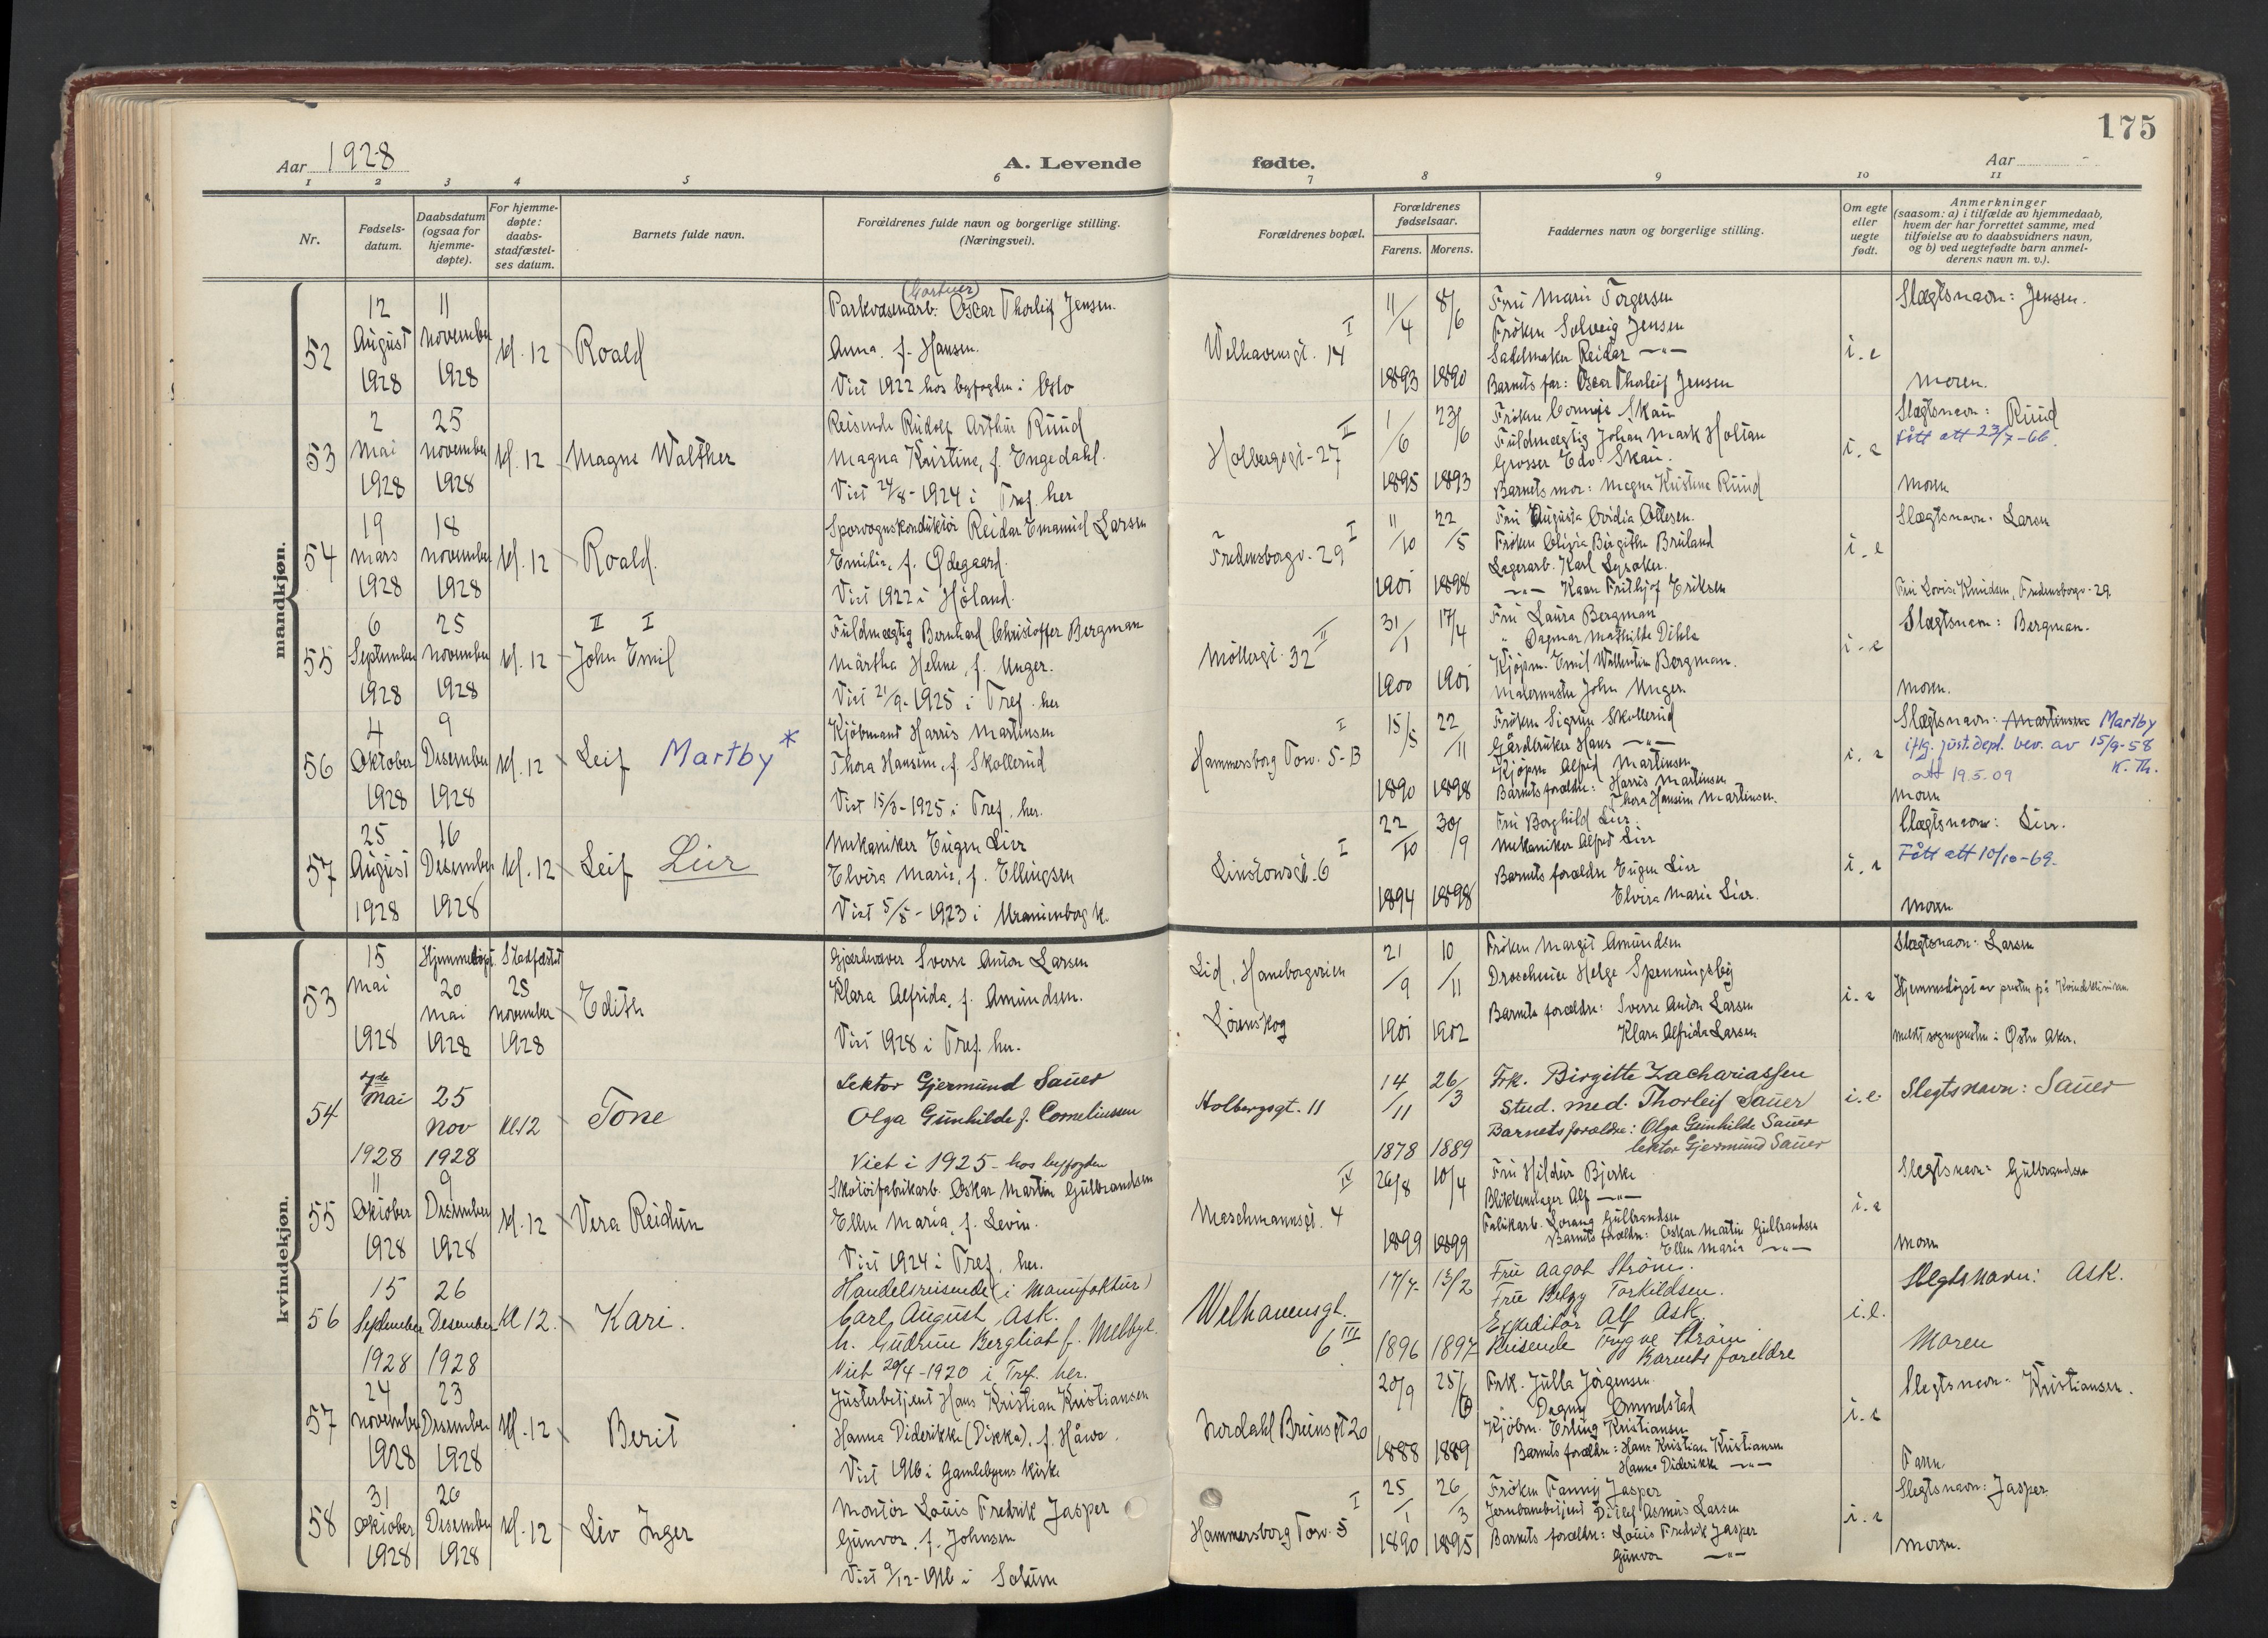 175
Aar 1928
A. Levende fødte.
Aar
1 2 3 4 5 6 7 8 9 10 11
Nr.
Fødsels-
datum.
Daabsdatum
(ogsaa for
hjemme-
døpte).
For hjemme-
døpte:
daabs-
stadfæstel-
ses datum.
Barnets fulde navn.
Forældrenes fulde navn og borgerlige stilling.
(Næringsvei).
Forældrenes bopæl.
Forældrenes
fødselsaar.
Farens. Morens.
Faddernes navn og borgerlige stilling.
Om egte
eller
uegte
født.
Anmerkninger
(saasom: a) i tilfælde av hjemmedaab,
hvem der har forrettet samme, med
tilføielse av to daabsvidners navn,
og b) ved uegtefødte barn anmel-
derens navn m. v.).
mandkjøn.
52
12
August
1928
11
november
1928
kl. 12
Roald
(Gartner)
Parkvæsenarb. Oscar Thorleif Jensen.
Anna f. Hansen.
Viet 1922 hos byfogden i Oslo
Welhavensgt. 14 I
11/4
1893
8/6
1890
Fru Marie Torgersen
Frøken Solveig Jensen
Sadelmaker Reidar -"-
Barnets far: Oscar Thorleif Jensen
i. e
Slægtsnavn: Jensen.
moren.
53
2
Mai
1928
25
november
1928
kl. 12
Magne Walther
Reisende Rudolf Arthur Ruud
Magna Kristine, f. Engedahl.
Viet 24/8-1924 i Tref. her
Holbergsgt. 27 II
1/6
1895
23/6
1893
Frøken Connie Skau
Fuldmægtig Johan Mark Holtan
Grosser Edv. Skau.
Barnets mor: Magna Kristine Ruud
i. e
Slægtsnavn: Ruud
Fått att 23/7-66.
moren
54
19
mars
1928
18
november
1928
kl. 12
Roald.
Sporvognskonduktør Reidar Emanuel Larsen
Emilie, f. Ødegaard.
Viet 1922 i Høland.
Fredensborgv. 29 I
11/10
1901
22/5
1898
Fru Augusta Ovidia Ottesen.
Frøken Olivia Birgithe Breiland
Lagerarb. Karl Lysaker.
-"- Kaare Frithjof Eriksen
i. e
Slægtsnavn: Larsen
Fru Lovise Knudsen, Fredensborgv. 29.
55
6
September
1928
25
november
1928
kl. 12
II I
John Emil
Fuldmægtig Bernhard Christoffer Bergman
Märtha Helene, f. Unger.
Viet 21/9-1925 i Tref. her
Møllergt. 32 II
31/1
1900
17/4
1901
Fru Laura Bergman
" Dagmar Mathilde Dihle
Kjøpm. Emil Wilhelm Bergman.
Malermester John Unger.
i. e
Slægtsnavn: Bergman.
moren.
56
4
Oktober
1928
9
Desember
1928
kl. 12
Leif Martby *
Kjøbmand Harris Martinsen
Thora Hansine, f. Skollerud
Viet 15/3-1925 i Tref. her.
Hammersborg Torv. 5-B I
15/5
1890
22/11
1898
Frøken Sigrun Skollerud
Gårdbruker Hans -"-
Kjøpm Alfred Martinsen
Barnets forældre: Harris Martinsen
Thora Hansine Martinsen.
i. e
Slægtsnavn: Martinsen Martby
iflg. just.dept. bev. av 15/9-58
att 19.5.09 K. Th.
moren
57
25
August
1928
16
Desember
1928
kl. 12
Leif Lier
Mekaniker Eugen Lier
Elvira Marie, f. Ellingsen
Viet 5/5-1923 i Uranienborg k.
Linstowsgt. 6 I
22/10
1894
30/9
1898
Fru Borghild Lier.
Mekaniker Alfred Lier
Barnets forældre Eugen Lier
Elvira Marie Lier.
i. e
Slægtsnavn: Lier.
Fått att 10/10-69.
moren
kvindekjøn.
53
15
mai
1928
Hjemmedøpt
20
mai
1928
Stadfæstet
25
november
1928
Edith
Gjørtleraver Sverre Anton Larsen
Klara Alfrida, f. Amundsen.
Viet 1928 i Tref. her.
Lid, Haneborgveien
Lørenskog
21/9
1901
10/11
1902
Frøken Margit Amundsen
Droscheeier Helge Spenningsby
Barnets forældre: Sverre Anton Larsen
Klara Alfrida Larsen
i. e
Slægtsnavn: Larsen
Hjemmedøpt av presten på Kvindeklinikken
meldt sognepresten i Østre Aker.
54
mai
1928
25
Nov
1928
kl 12
Tone
Lektor Gjermund Sauer
Olga Gunhilde f. Corneliussen
Viet i 1925 - hos byfogden
Holbergsgt. 11
14/11
1878
26/3
1889
Frk. Birgitte Zachariassen
Stud. med. Thorleif Sauer
Barnets forældre: Olga Gunhilde Sauer
lektor Gjermund Sauer
i. e.
Slegtsnavn: Sauer
55
11
Oktober
1928
9
Desember
1928
kl. 12
Vera Reidun
Skotøifabrikarb. Oskar Martin Gulbrandsen
Ellen Maria, f. Levin.
Viet 1924 i Tref. her.
Maschmannsgt. 4 IV
26/8
1899
10/4
1899
Fru Hildur Bjerke
Blikkenslager Alf -"-
Fabrikarb. Lorang Gulbrandsen
Barnets forældre: Oskar Martin Gulbrandsen
Ellen Maria -"-
i. e
Slegtsnavn: Gulbrandsen
moren
56
15
September
1928
26
Desember
1928
Kl 12.
Kari.
Handelsreisende (i Manufaktur)
Carl August Ask.
h. Gudrun Bergliot f. Melbye.
Viet 20/4-1920 i Tref. her.
Welhavensgt.
6 III
17/7
1896
13/2
1897
Frue Aagot Strøm.
Frue Helga Torkildsen.
Expeditør Alf Ask.
Reisende Trygve Strøm
Barnets foreldre
i. e.
Slegtsnavn: Ask.
Moren
57
24
november
1928
23
Desember
1928
kl. 12
Berit
Justerbetjent Hans Kristian Kristiansen
Hanna Diderikke (Dikka), f. Håwe.
Viet 1916 i Gamlebyens kirke
Nordahl Bruns gt 20
20/9
1888
25/6
1889
Frk. Julla Jørgensen
" Dagny Ommelstad
Kjøbm. Erling Kristiansen
Barnets forældre: Hans Kristian Kristiansen
Hanna Diderikke -"-
i. e
Slegtsnavn: Kristiansen.
Faren
58
31
Oktober
1928
26
Desember
1928
kl. 12
Liv Inger
Montør Louis Fredrik Jasper
Gunvor f. Johnsen
Viet 9/12-1916 i Solum
Hammersborg Torv. 5 I
25/1
1890
26/3
1895
Frøken Fanny Jasper
Jernbanebetjent Ditlef Asmus Larsen
Barnets forældre: Louis Fredrik Jasper
Gunvor -"-
i. e
Slegtsnavn: Jasper
moren.